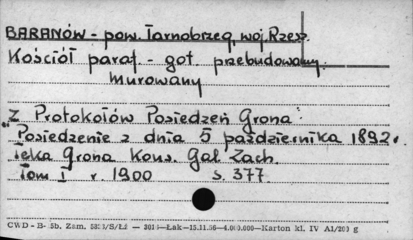 BARANÓW - pow. Tarnobrzeg, woj. Rzesz.
Kościół paraf. - got. przebudowany.
murowany
"Z Protokołów Posiedzeń Grona":
Posiedzenie z dnia 5 października 1892 r.
Teka Grona Kons. Gal Zach.
Tom I r. 1900 s. 377.
CWD - B- 5b. Zam. - Łak-15.11.56-4.000.000-Karton kl. IV A1/200 g